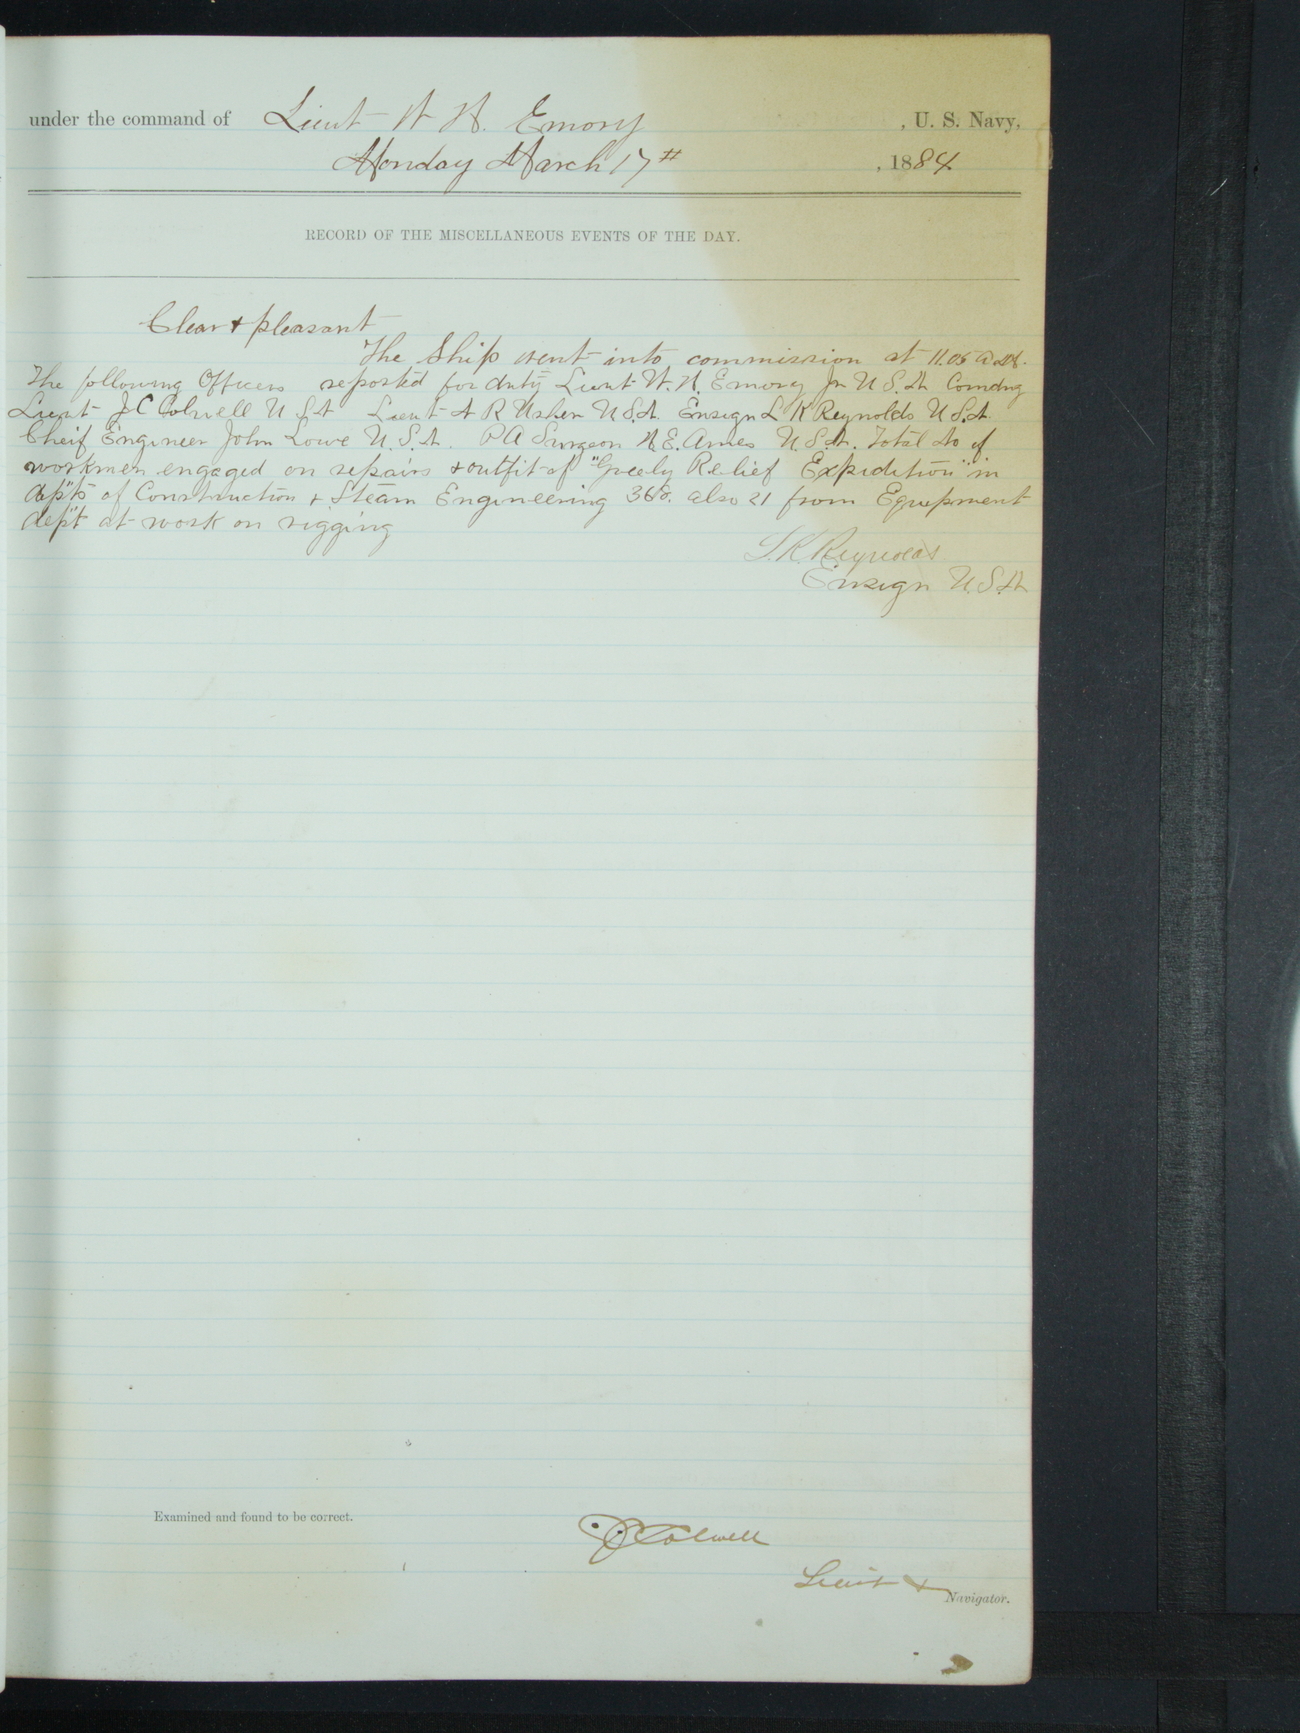 under the command of Lieut W H. Emory , U. S. Navy,
Monday March 17th , 1884
RECORD OF THE MISCELLANEOUS EVENTS OF THE DAY.
Clear & pleasant
The Ship went into commission at 11.05 A.M.
The following Officers reported for duty Lieut W. H. Emory Jr U.S.N. Comdng
Lieut J C Colwell U.S.N Lieut N R Usher U.S.N. Ensign L K Reynolds U.S.N.
Cheif Engineer John Lowe U.S.N. P A Surgeon H. E. Ames U.S.N. Total No of
workmen engaged on repairs & outfit of "Greely Relief Expidition" in
dep'ts of Construction & Steam Engineering 368. also 21 from Equipment
dep't at work on rigging
L.K. Reynolds.
Ensign U.S.N
Examined and found to be correct.
J C Colwell
Lieut &
Navigator.